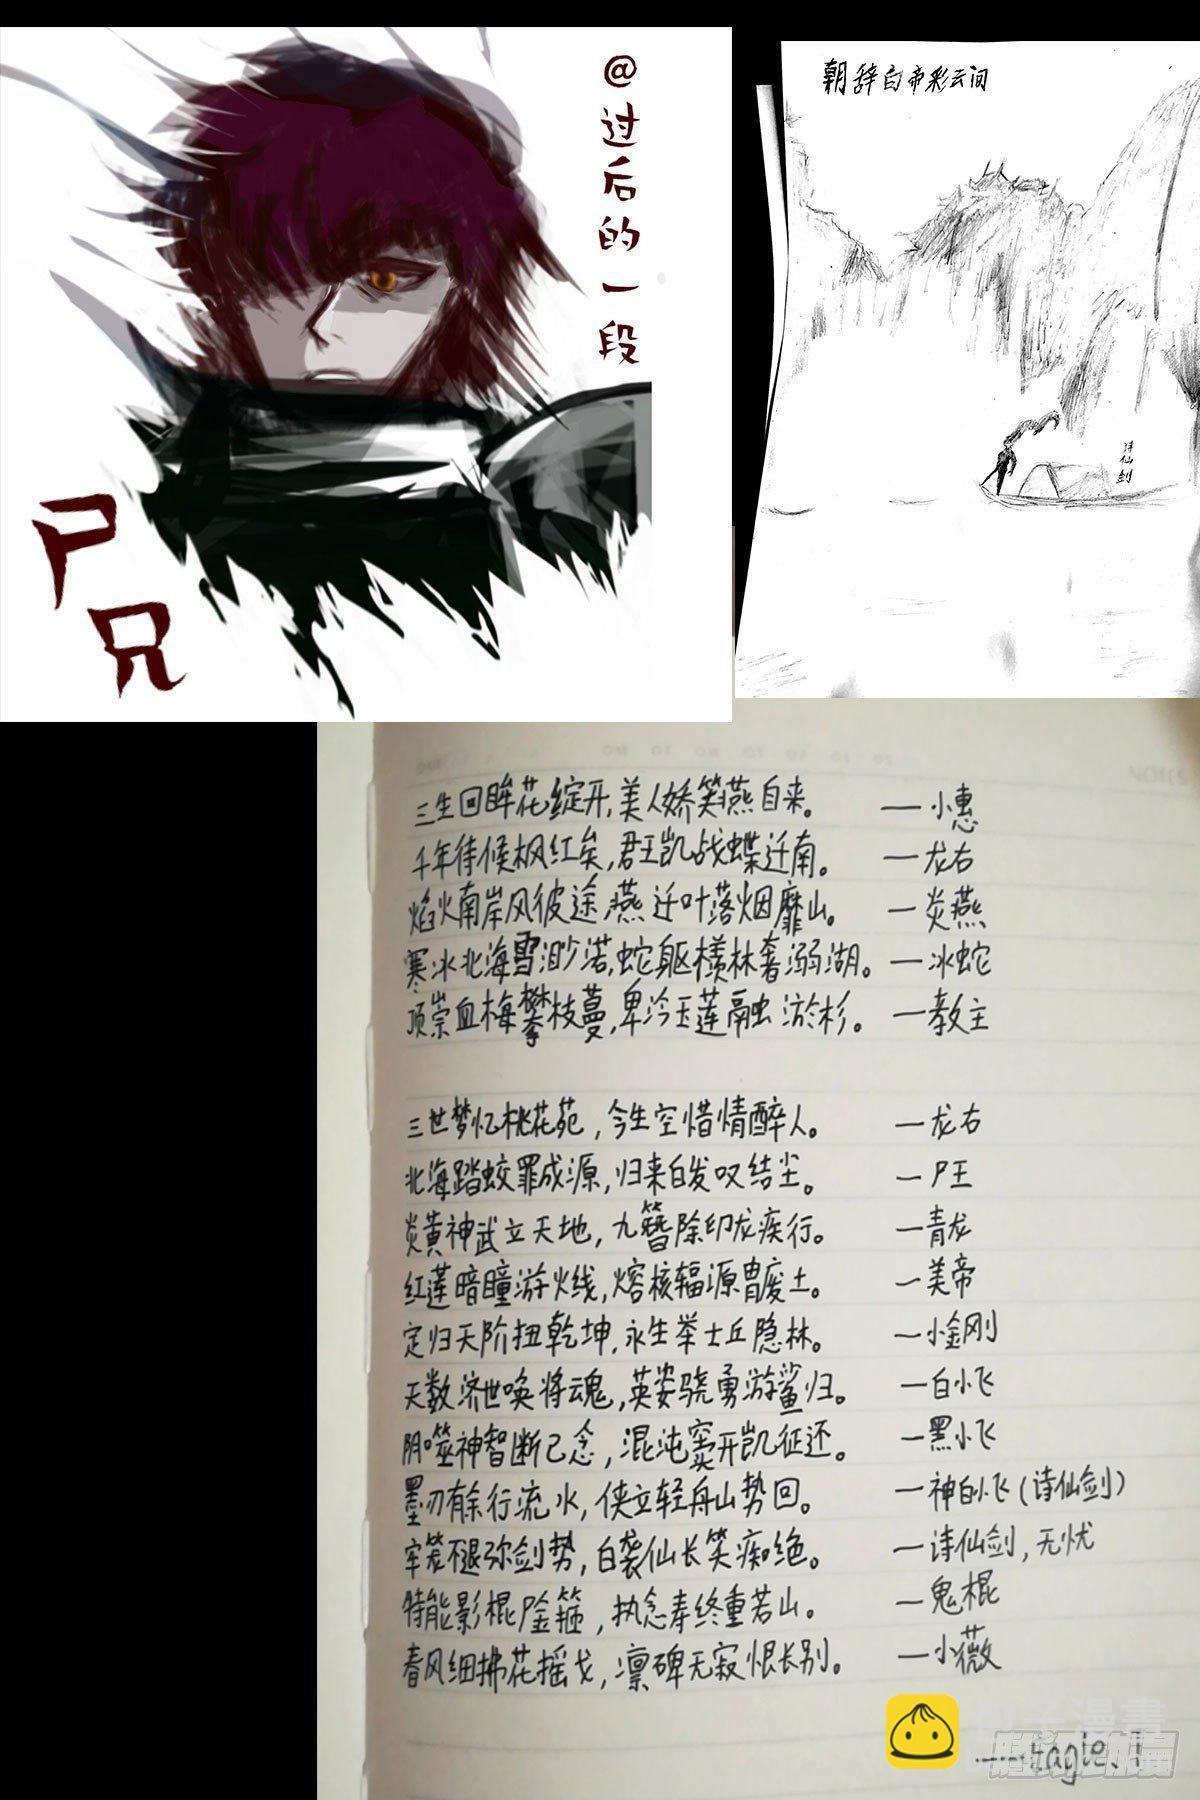 @过后的一段
尸兄
朝辞白帝彩云间
诗仙剑
三生回眸花绽开,美人娇笑燕自来。 —小惠
千年待候枫红矣,君王凯战蝶迁南。 —龙右
焰火南岸风彼途,燕迁叶落烟靡山。 —炎燕
寒冰北海雪渺渃,蛇躯横林奢溺湖。 —冰蛇
顶崇血梅攀枝蔓,卑冷玉莲融淤杉。 —教主
三世梦忆桃花苑,今生空惜情醉人。 —龙右
北海踏蛟罪成源,归来白发叹结尘。 —尸王
炎黄神武立天地,九簪除印龙疾行。 —青龙
红莲暗瞳游火线,熔核辐源冑废土。 —美帝
定归天阶扭乾坤,永生举士丘隐林。 —小金刚
天数济世唤将魂,英姿骁勇游鲨归。 —白小飞
阴噬神智断己念,混沌窦开凯征还。 —黑小飞
墨刃有余行流水,侠立轻舟山势回。 —神白小飞(诗仙剑)
牢笼不退弥剑势,白袭仙长笑痴绝。 —诗仙剑,无忧
特能影棍尸金箍,执念寿终重若山。 —鬼棍
春风细拂花摇戈,凛碑无寂恨长别。 —小薇